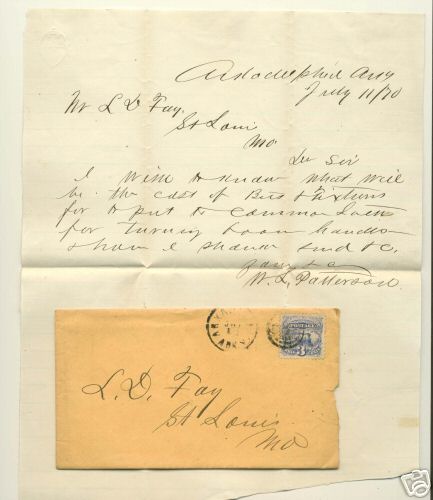 Arkadelphia Ark
July 11/70
Mr L D Fay
St Louis
Mo
Dr Sir
I wish to know what will
be the cost of Bits & fixtures
for to put to common lathe
for turning broom handles
& how I should send &c.
yours &c
W. L. Patterson
ARK
POSTAGE
3
L. D. Fay
St Louis
Mo